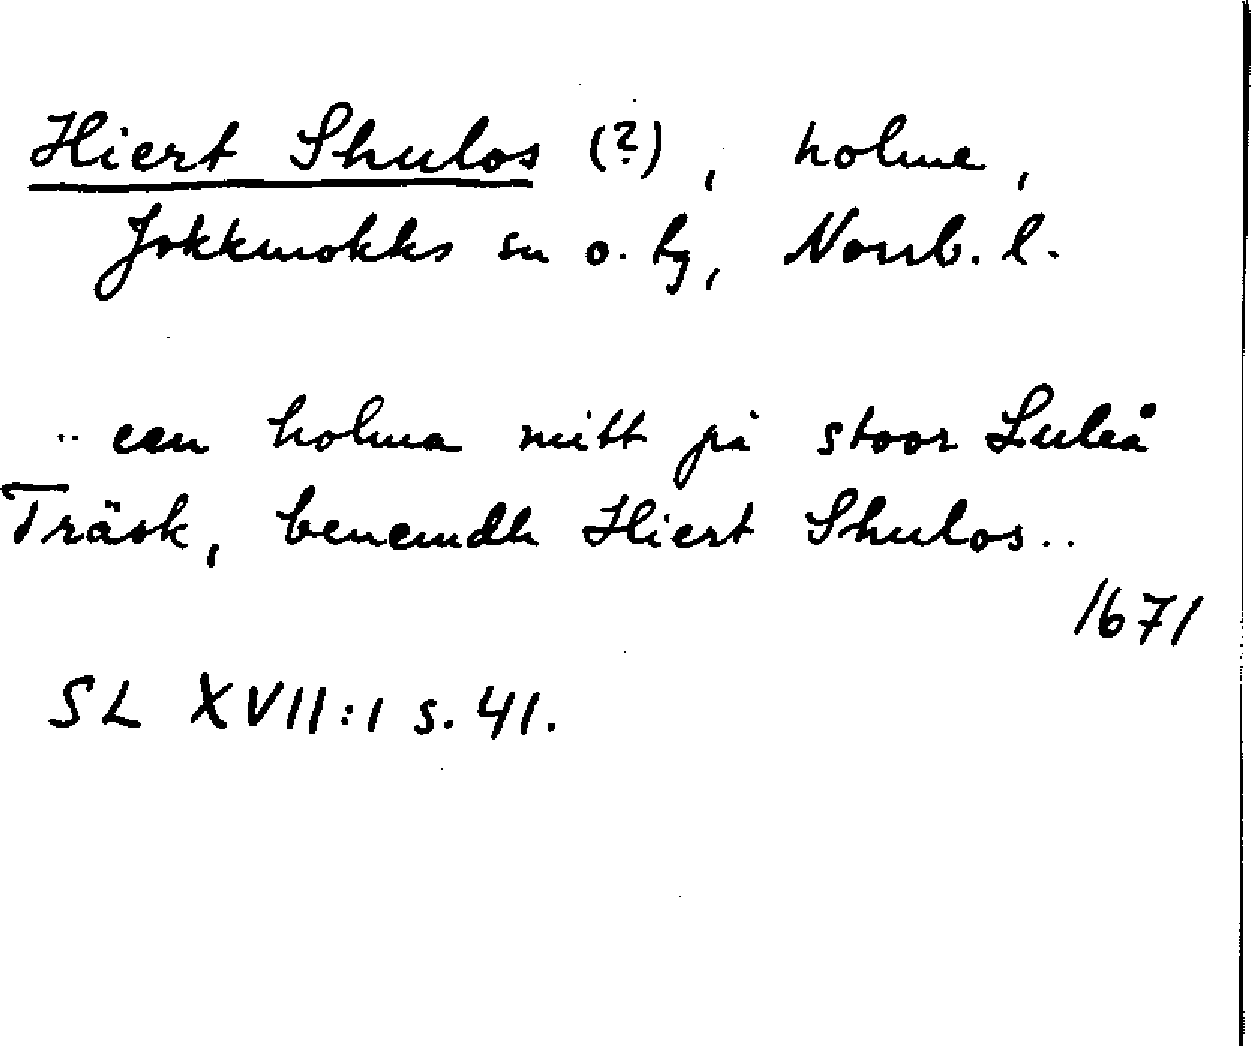 Hiert Shulos (?), holme,
Jokkmokks sn o. tg, Norrb. l.
.. een holma mitt på stoor Luleå
Träsk, benemdh Hiert Shulos..
1671
SL XVII:1 s. 41.